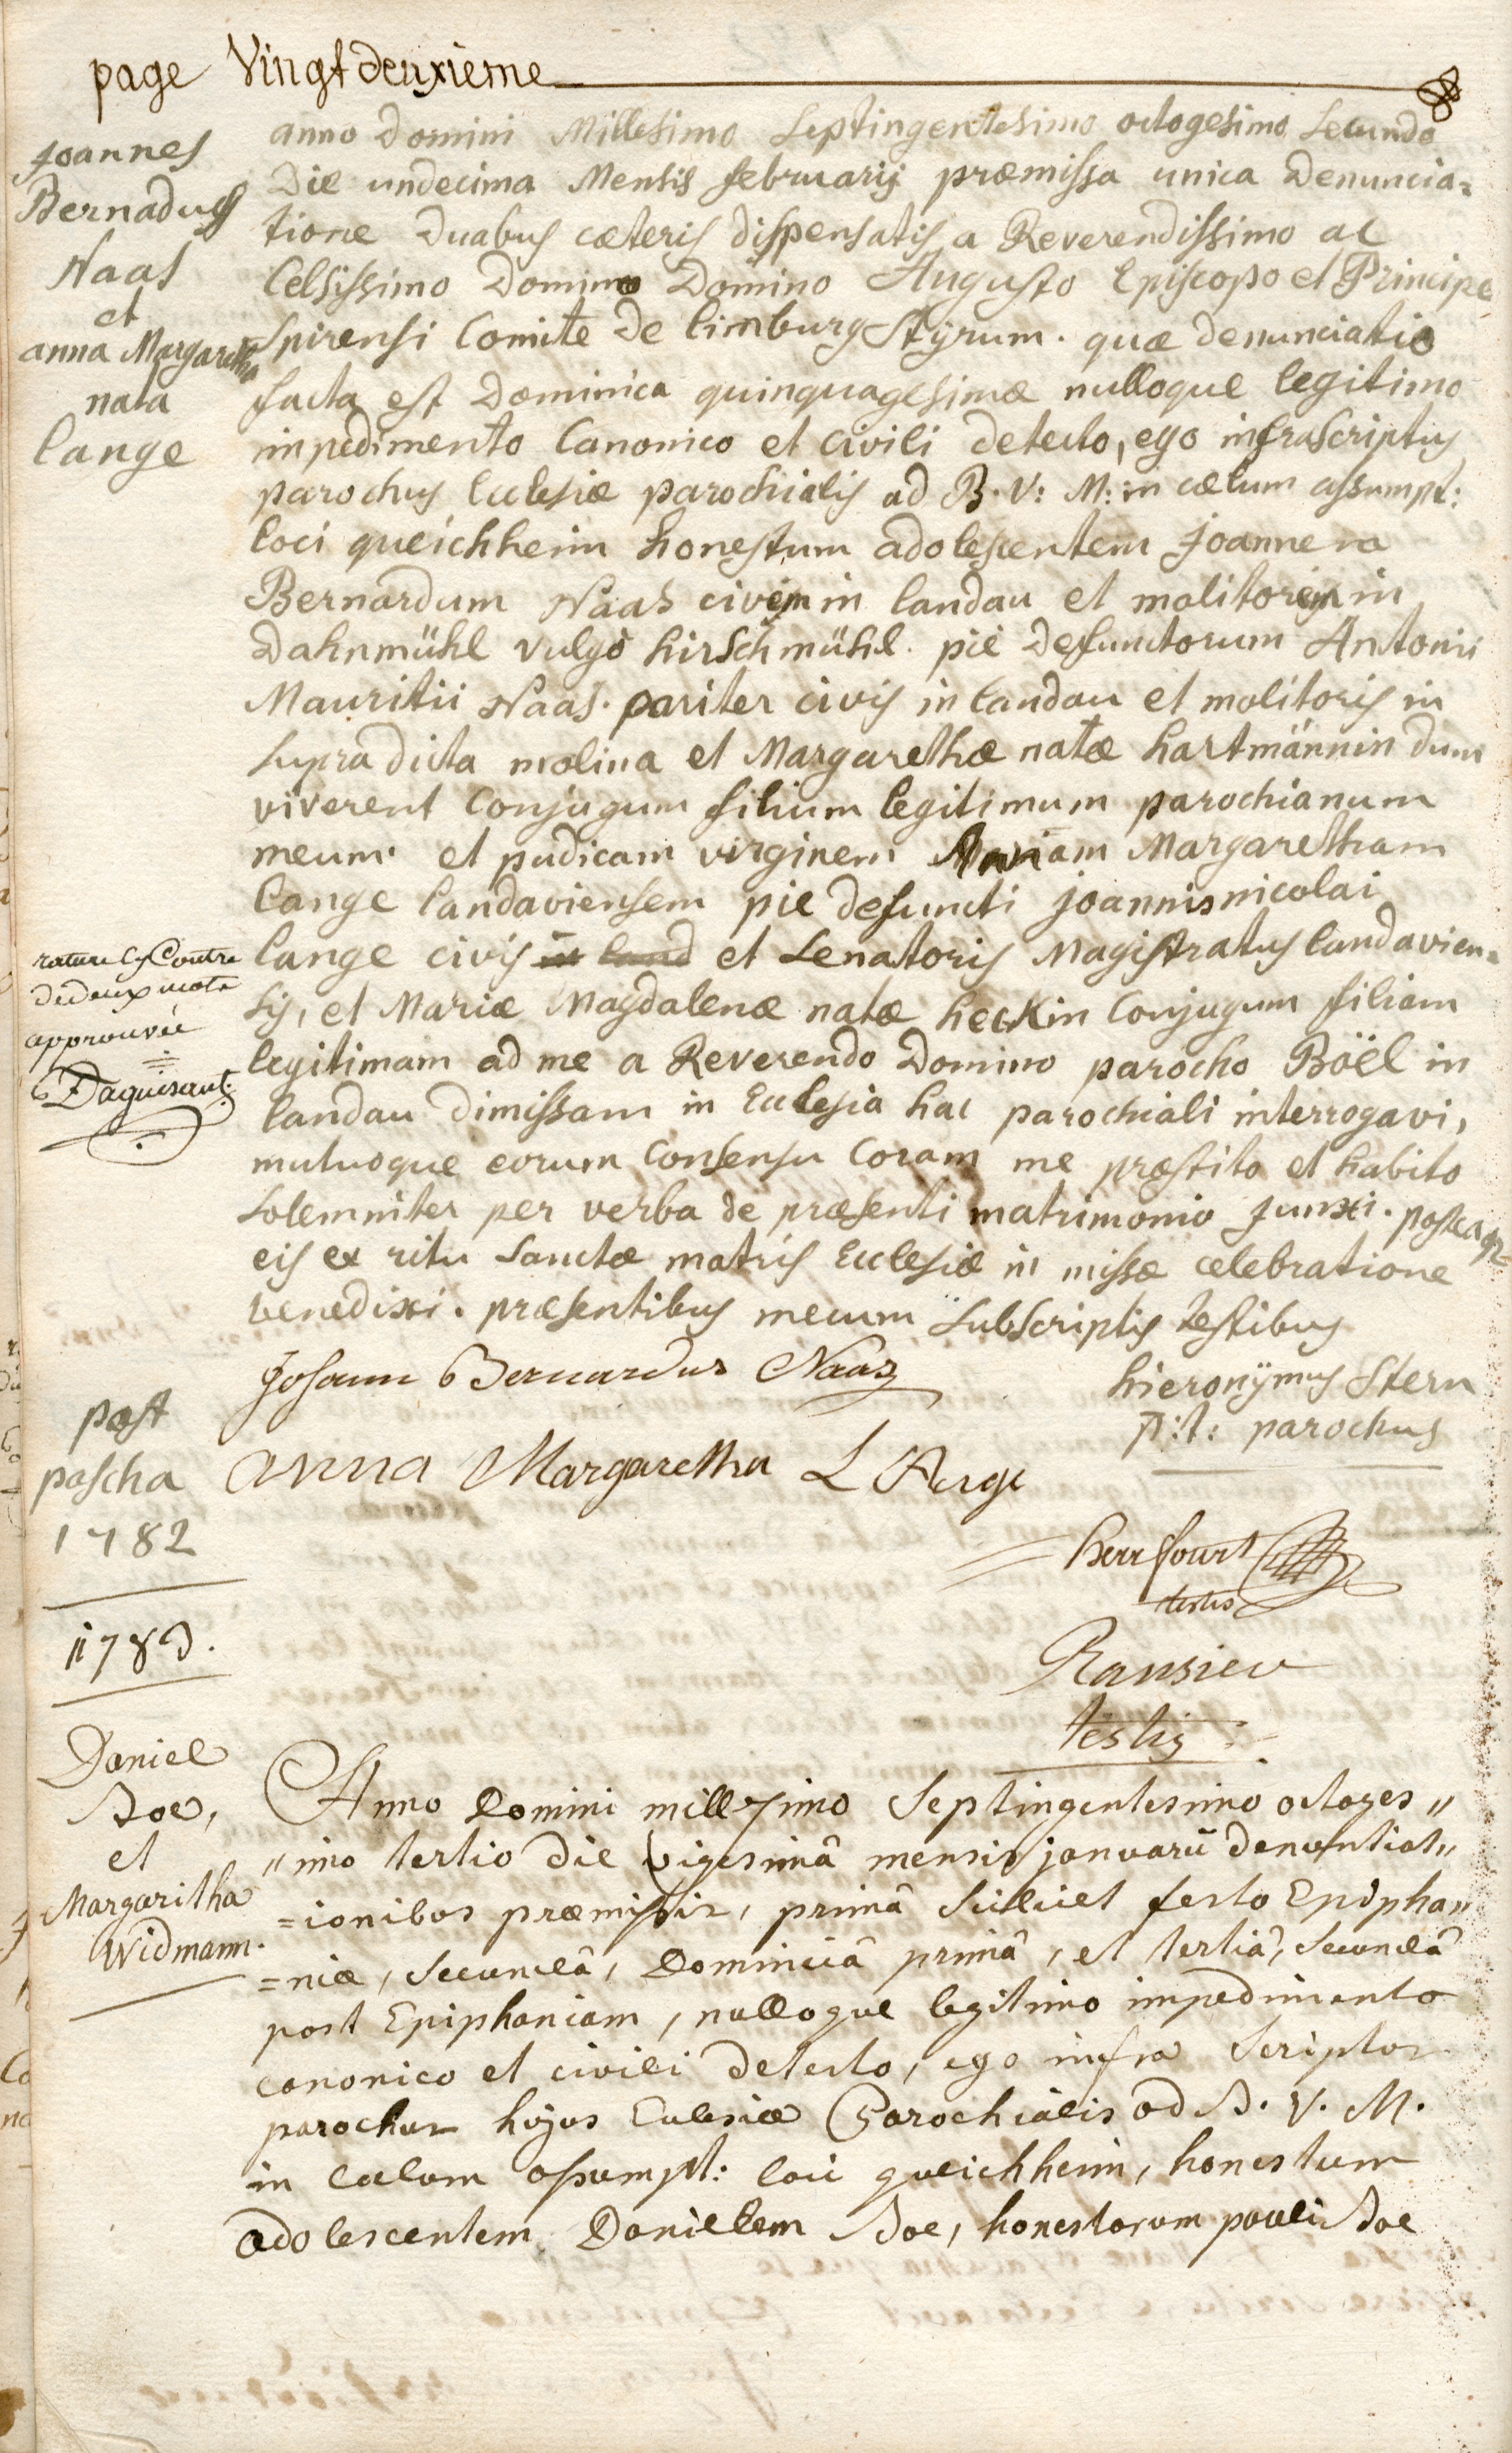 page Vingt deuxieme
Joannes
Bernadus
Naas
et
anna Margaretha
nata
Lange
anno Domini Millesimo Septingentesimo octogesimo Secundo
Die undecima Mensis februarij præmissa unica Denuncia=
tione Duabus cæteris dispensatis a Reverendissimo ac
Celsissimo Domino Domino Augusto Episcopo et Principe
Spirensi Comite De Limburg Styrum. quæ denunciatio
facta est Dominica quinquagesimæ nulloque legitimo
impedimento Canonico et Civili detecto, ego infrascriptus
parochus Ecclesiæ parochialis ad B. V: M: in cælum assumpt:
loci queichheim honestum adolescentem Joannem
Bernardum Naas civem in Landau et molitorem in
Dahnmühl vulgo hirschmühl. pie Defunctorum Antonii
Mauritii Naas. pariter civis in Landau et molitoris in
supra dicta molina et Margarethæ natæ hartmännin dum
viverent Conjugum filium legitimum parochianum
meum. et pudicam virginem Annam Margaretham
Lange Landaviensem pie defuncti Joannis nicolai
Lange civis in Land et Senatoris Magistratus Landavien=
sis, et Mariæ Magdalenæ natæ heckin Conjugum filiam
legitimam ad me a Reverendo Domino parocho Böël in
Landau dimissam in Ecclesia hac parochiali interrogavi,
mutuoque eorum Consensu Coram me præstito et habito
solemniter per verba de præsenti matrimonio Junxi. postea
eis ex ritu Sanctæ matris Ecclesiæ in missæ celebratione
benedixi. præsentibus mecum subscriptis testibus
rature Cy Contre
de deux mots
approuvée
Johann Bernardus Naas
hieronymus Stern
p:t: parochus
anna Margaretha LAnge
post
pascha
1782
herrfourt
testis
Ransieu
testis
1783.
Daniel
Doe,
et
Margaritha
Widmann.
Anno Domini millesimo Septingentesimo octoges"
"imo tertio die vigesimâ mensis januarii denuntiat"
=ionibus præmissis, primâ Scilicet festo Epipha"
=niæ, secundâ, Dominicâ primâ, et tertiâ, secundâ
post Epiphaniam, nulloque legitimo impedimento
canonico et civili detecto, ego infra Scriptus
parochus hujus Eclesiæ Parochialis ad B. V. M.
in Cælum assumpt: loci queichheim, honestum
adolescentem Danielem Doe, honestorum pauli Doe